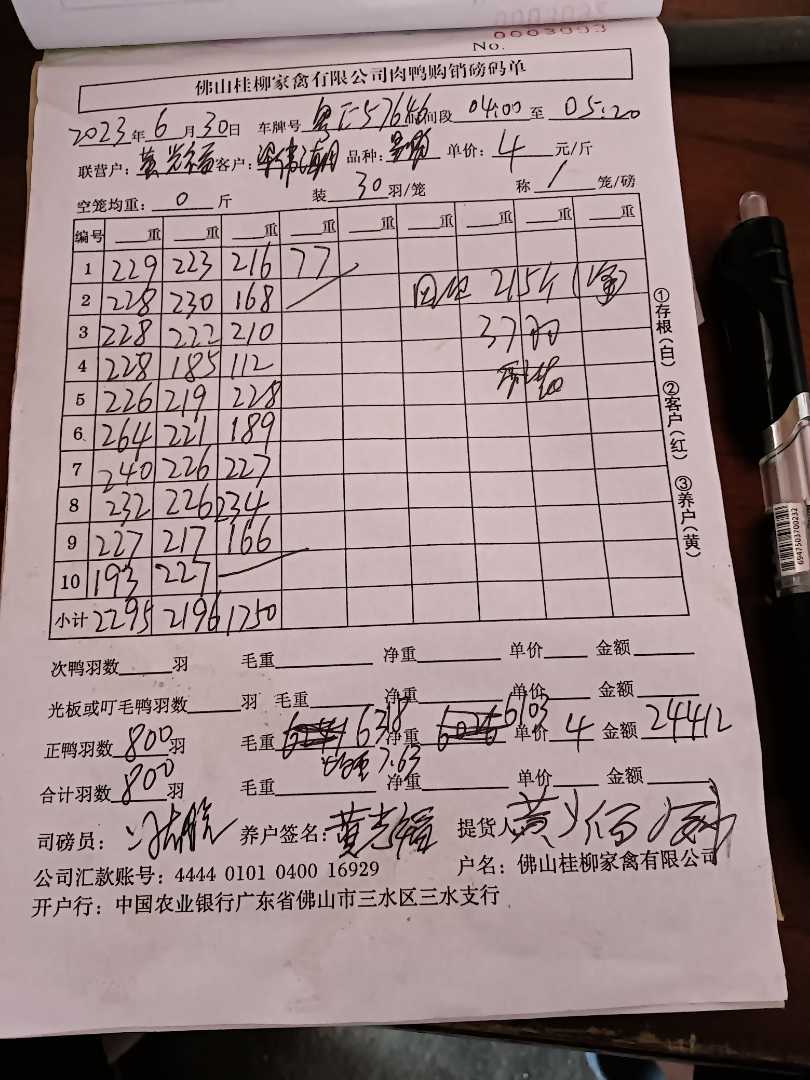 0003093
No.
佛山桂柳家禽有限公司肉鸭购销磅码单
2023年6月30日 车牌号 粤E57646 时间段 04:00 至 05:20
联营户: 黄光福 客户: 品种: 单价: 4 元/斤
空笼均重: 0 斤 装 30 羽/笼 称 1 笼/磅
编号 重 重 重 重 重 重 重 重
1 229 223 216 77
2 228 230 168 215斤
3 228 222 210 37羽
4 228 185 112
5 226 219 228
6 264 221 189
7 240 226 227
8 232 226 234
9 227 217 166
10 193 227
小计 2295 2196 1750
①存根(白) ②客户(红) ③养户(黄)
次鸭羽数 羽 毛重 净重 单价 金额
光板或叮毛鸭羽数 羽 毛重 净重 单价 金额
正鸭羽数 800 羽 毛重 6318 净重 6103 单价 4 金额 24412
均重7.63
合计羽数 800 羽 毛重 净重 单价 金额
司磅员: 养户签名: 黄光福 提货人
公司汇款账号: 4444 0101 0400 16929 户名: 佛山桂柳家禽有限公司
开户行: 中国农业银行广东省佛山市三水区三水支行
6947503700232